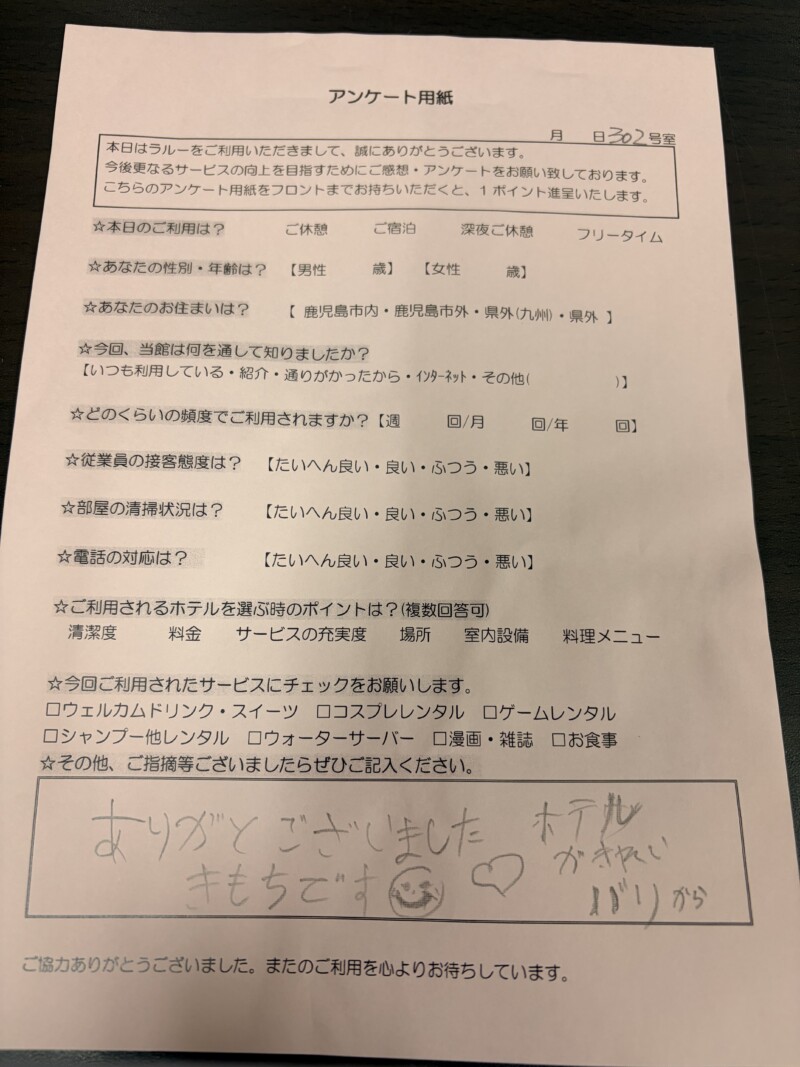 アンケート用紙
月 日302号室
本日はラルーをご利用いただきまして、誠にありがとうございます。
今後更なるサービスの向上を目指すためにご感想・アンケートをお願い致しております。
こちらのアンケート用紙をフロントまでお持ちいただくと、1ポイント進呈いたします。
☆本日のご利用は? ご休憩 ご宿泊 深夜ご休憩 フリータイム
☆あなたの性別・年齢は? 【男性 歳】 【女性 歳】
☆あなたのお住まいは? 【 鹿児島市内・鹿児島市外・県外(九州)・県外 】
☆今回、当館は何を通して知りましたか?
【いつも利用している・紹介・通りがかったから・ｲﾝﾀｰﾈｯﾄ・その他( )】
☆どのくらいの頻度でご利用されますか?【週 回/月 回/年 回】
☆従業員の接客態度は? 【たいへん良い・良い・ふつう・悪い】
☆部屋の清掃状況は? 【たいへん良い・良い・ふつう・悪い】
☆電話の対応は? 【たいへん良い・良い・ふつう・悪い】
☆ご利用されるホテルを選ぶ時のポイントは?(複数回答可)
清潔度 料金 サービスの充実度 場所 室内設備 料理メニュー
☆今回ご利用されたサービスにチェックをお願いします。
□ウェルカムドリンク・スイーツ □コスプレレンタル □ゲームレンタル
□シャンプー他レンタル □ウォーターサーバー □漫画・雑誌 □お食事
☆その他、ご指摘等ございましたらぜひご記入ください。
ありがとございました
きもちです
ホテル
バリから
ご協力ありがとうございました。またのご利用を心よりお待ちしています。